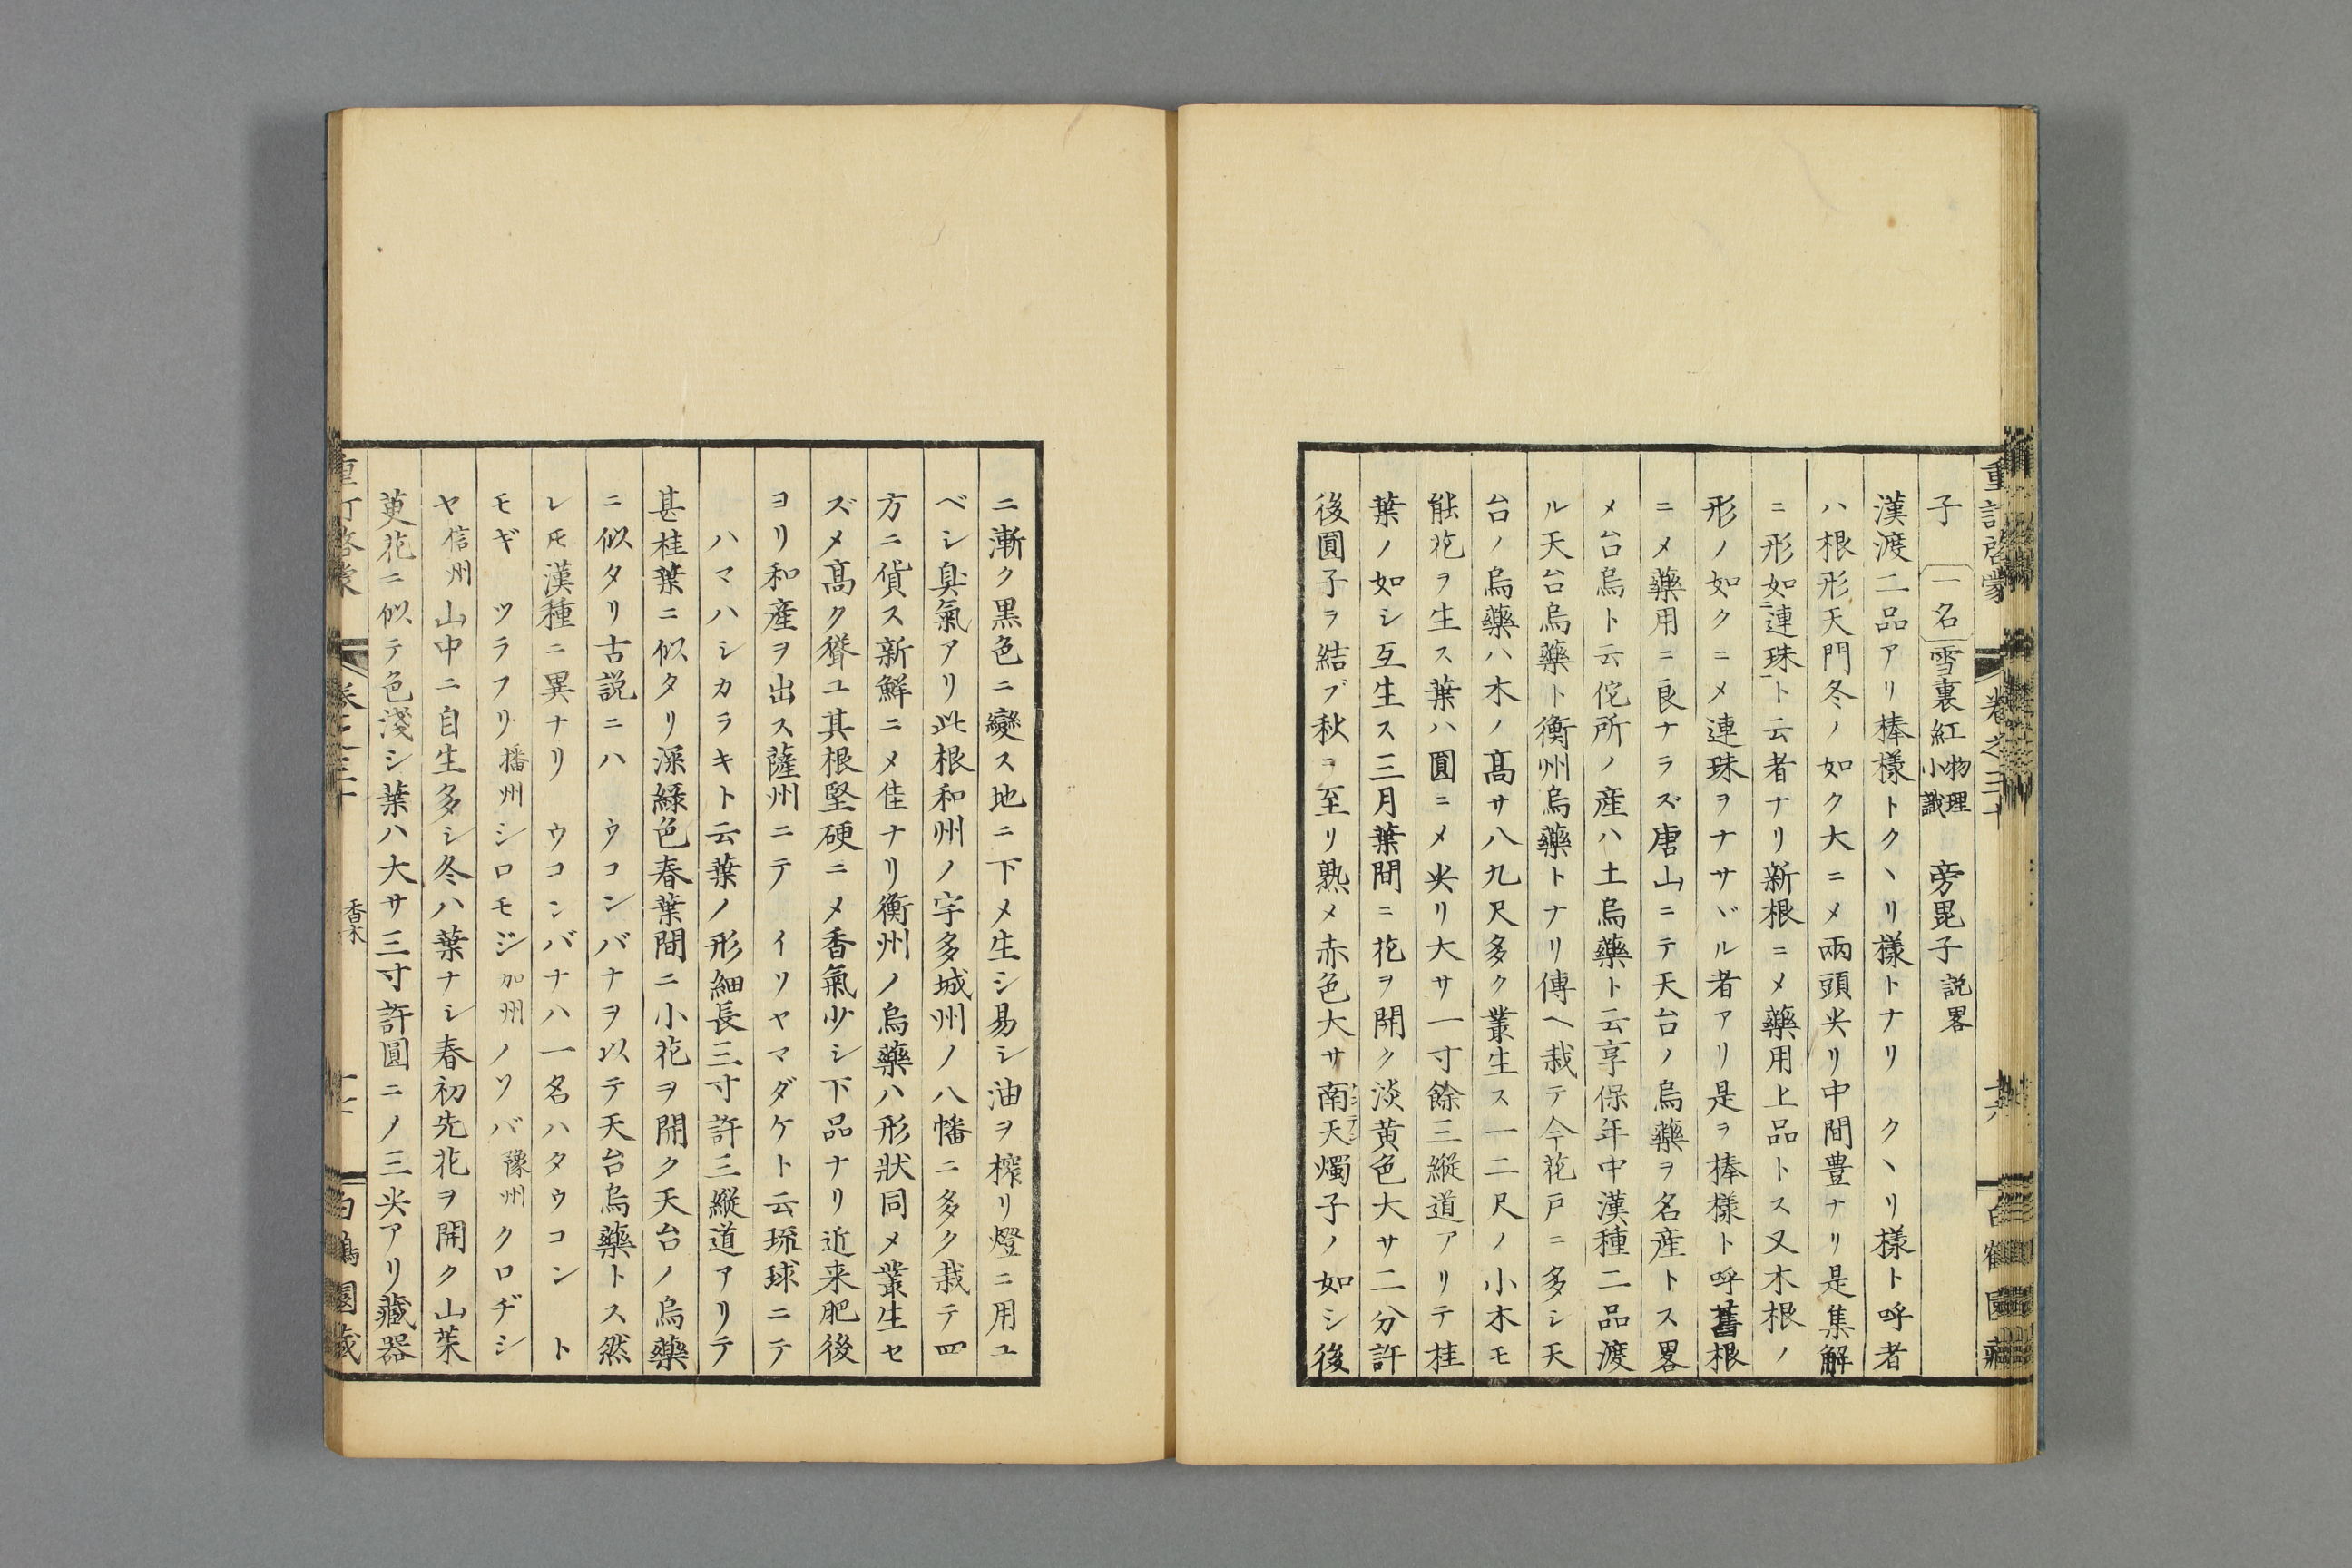 重訂啓蒙 卷之三十 十六 白鶴園藏
子 一名 雪裏紅 物理小識 旁毘子 説畧
漢渡二品アリ棒樣トクヽリ樣トナリ クヽリ樣ト呼者
ハ根形天門冬ノ如ク大ニメ兩頭尖リ中間豊ナリ是集解
ニ形如ニ連珠一ト云者ナリ新根ニメ藥用上品トス又木根ノ
形ノ如クニメ連珠ヲナサヾル者アリ是ヲ棒樣ト呼舊根
ニメ藥用ニ良ナラズ唐山ニテ天台ノ烏藥ヲ名産トス畧
メ台烏ト云佗所ノ産ハ土烏藥ト云享保年中漢種二品渡
ル天台烏藥ト衡州烏藥トナリ傳ヘ栽テ今花戸ニ多シ天
台ノ烏藥ハ木ノ髙サ八九尺多ク叢生ス一二尺ノ小木モ
能花ヲ生ス葉ハ圓ニメ尖リ大サ一寸餘三縱道アリテ桂
葉ノ如シ互生ス三月葉間ニ花ヲ開ク淡黄色大サ二分許
後圓子ヲ結ブ秋ヲ至リ熟メ赤色大サ南天燭子ノ如シ後
ニ漸ク黒色ニ變ス地ニ下メ生シ易シ油ヲ搾リ燈ニ用ユ
ベシ臭氣アリ此根和州ノ宇多城州ノ八幡ニ多ク栽テ四
方ニ貨ス新鮮ニメ佳ナリ衡州ノ烏藥ハ形狀同メ叢生セ
ズメ髙ク聳ユ其根堅硬ニメ香氣少シ下品ナリ近来肥後
ヨリ和産ヲ出ス薩州ニテ イソヤマダケト云琉球ニテ
ハマハシカラキト云葉ノ形細長三寸許三縱道アリテ
甚桂葉ニ似タリ深緑色春葉間ニ小花ヲ開ク天台ノ烏藥
ニ似タリ古説ニハ ウコンバナヲ以テ天台烏藥トス然
レモ漢種ニ異ナリ ウコンバナハ一名ハタウコン ト
モギ ツラフリ 播州 シロモジ 加州 ノソバ 豫州 クロヂシ
ヤ 信州 山中ニ自生多シ冬ハ葉ナシ春初先花ヲ開ク山茱
萸花ニ似テ色淺シ葉ハ大サ三寸許圓ニノ三尖アリ藏器
重訂啓蒙 卷之三十 香木 十七 白鶴園藏